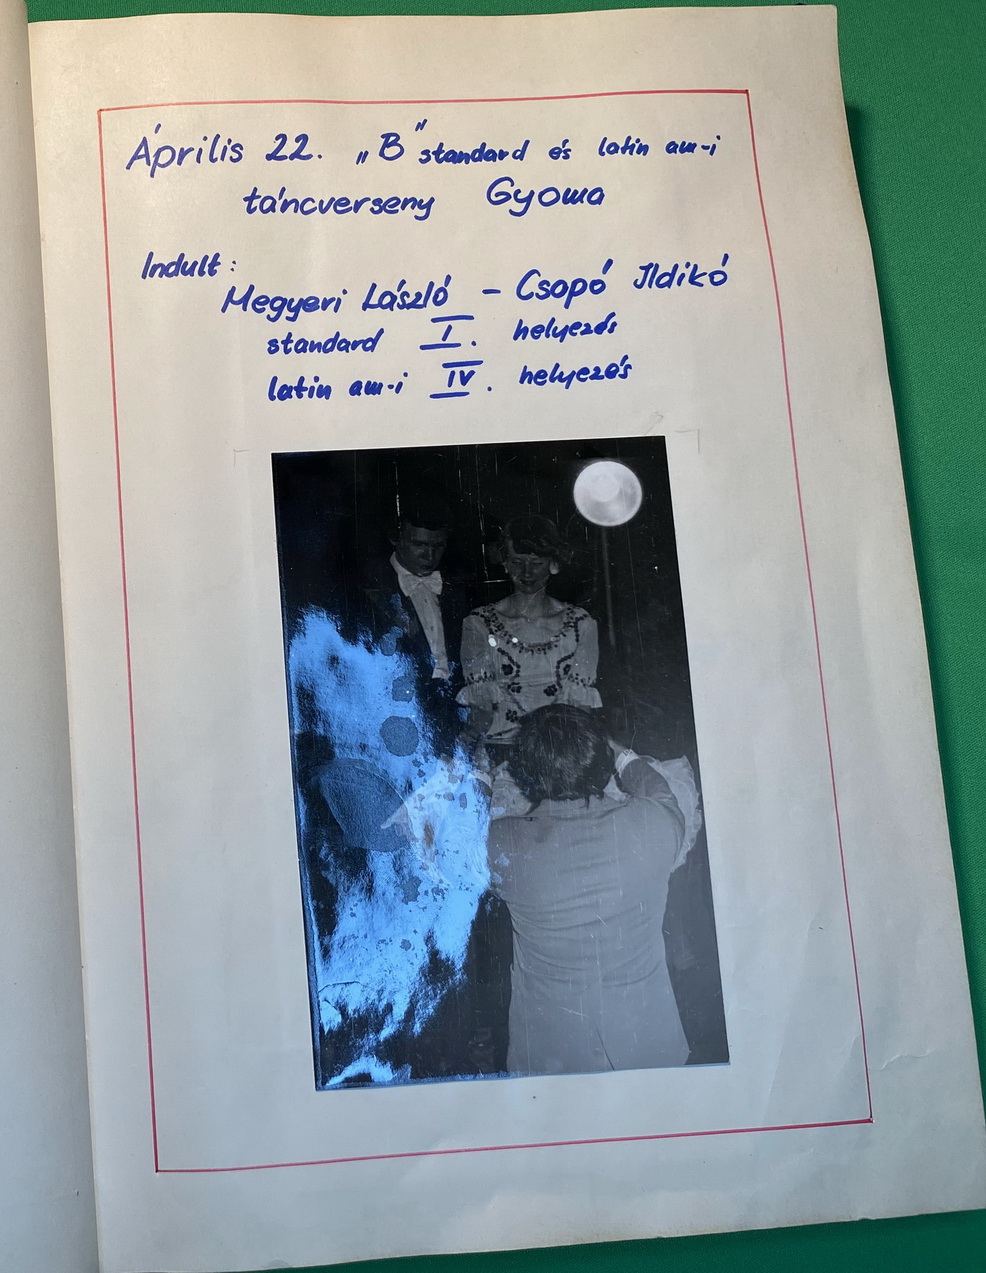 Április 22. „B" standard és latin am-i
táncverseny Gyoma
Indult:
Megyeri László – Csopó Ildikó
standard I. helyezés
latin am-i IV. helyezés